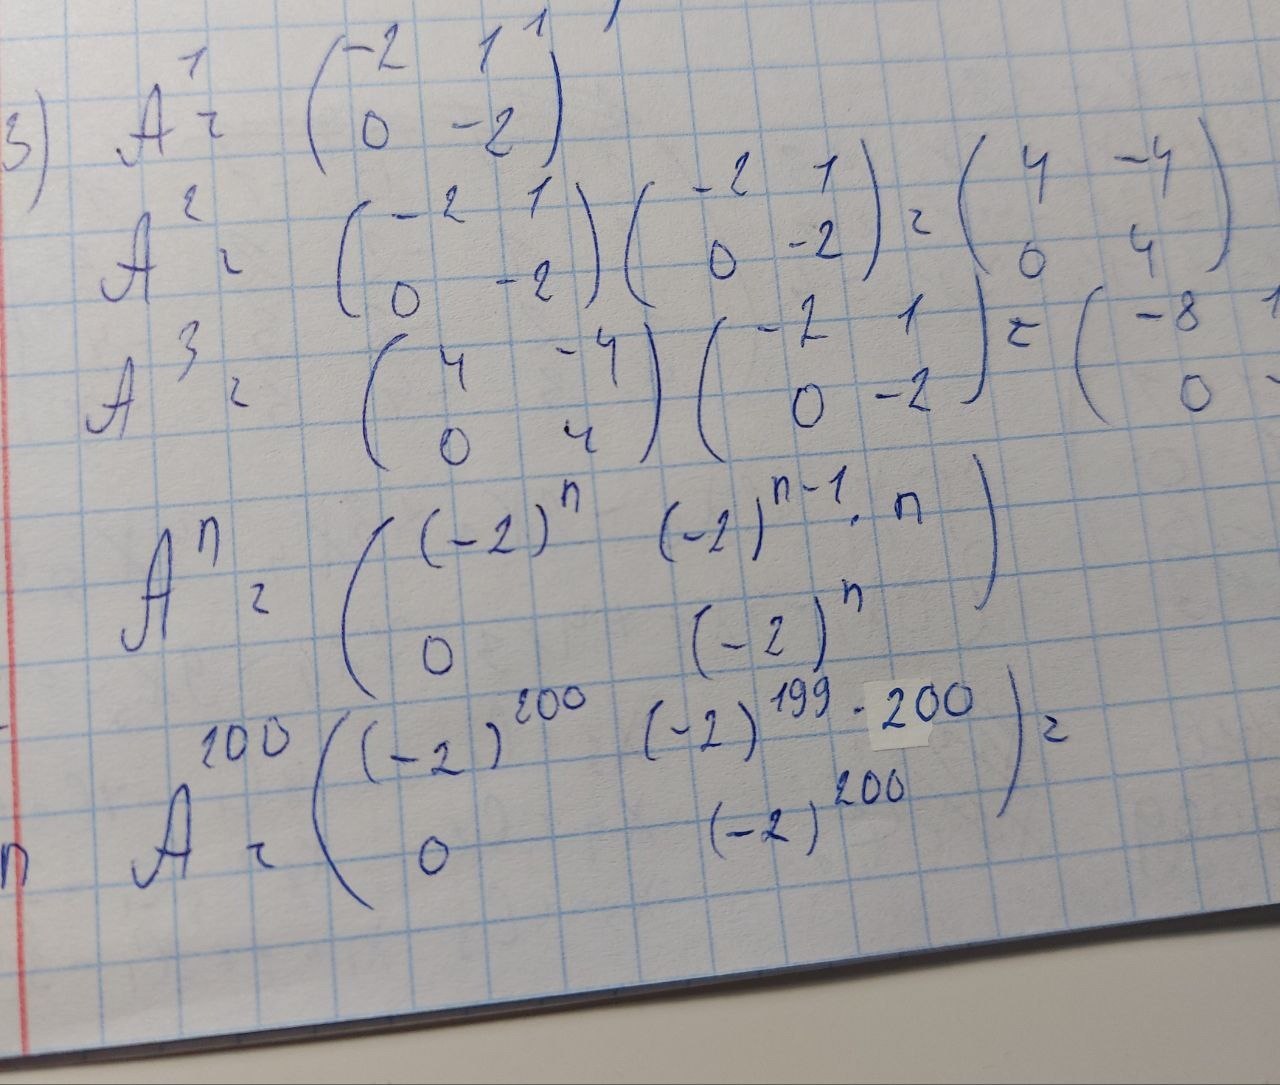 3) A¹ = (-2 1
0 -2)
A² = (-2 1
0 -2) (-2 1
0 -2) = (4 -4
0 4)
A³ = (4 -4
0 4) (-2 1
0 -2) = (-8 1
0 -
Aⁿ = ((-2)ⁿ (-2)ⁿ⁻¹ · n
0 (-2)ⁿ)
A²⁰⁰ = ((-2)²⁰⁰ (-2)¹⁹⁹ · 200
0 (-2)²⁰⁰) =
n